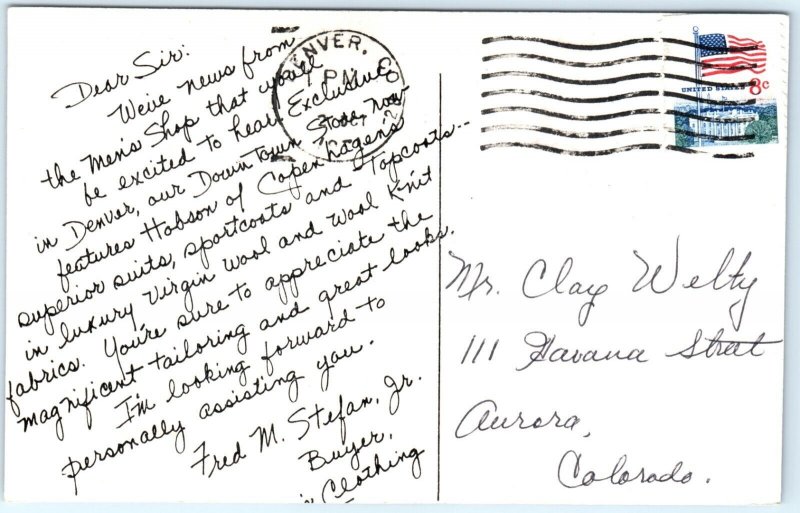 Dear Sir:
We've news from
the Men's Shop that you'll
be excited to hear. Exclusive
in Denver, our DownTown Store now
features Hobson of Copenhagen's
superior suits, sportcoats and Topcoats --
in luxury Virgin Wool and Wool Knit
fabrics. You're sure to appreciate the
magnificent tailoring and great looks.
I'm looking forward to
personally assisting you.
Fred M. Stefan, Jr.
Buyer,
Clothing
DENVER,
PM
UNITED STATES 8c
Mr. Clay Welty
111 Havana Street
Aurora,
Colorado.